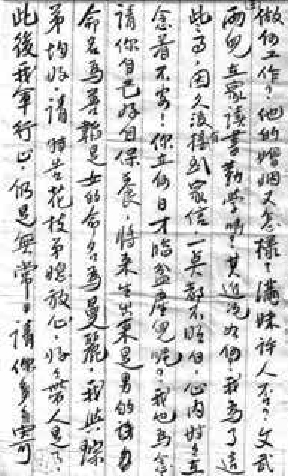 做何工作?他的婚姻又怎樣?滿妹許人否?文武
兩兒在家讀書勤學嗎?其近況如何?我為了這
此事,因久沒接到家信,一點都不明白,心內好生
念着不安!你在何日才臨盆產兒呢?我也為念
請你自己好自保養,將來生出來是男的請為
命名為善韜是女的命名為曼麗,我與琮
弟均好,請轉告花枝弟媳放心,
此後我軍行止,仍是無常!請你多多寄